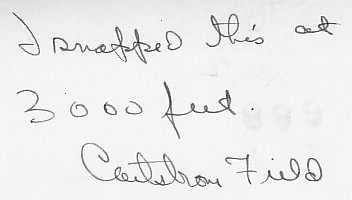 I snapped this at
3000 feet.
Field